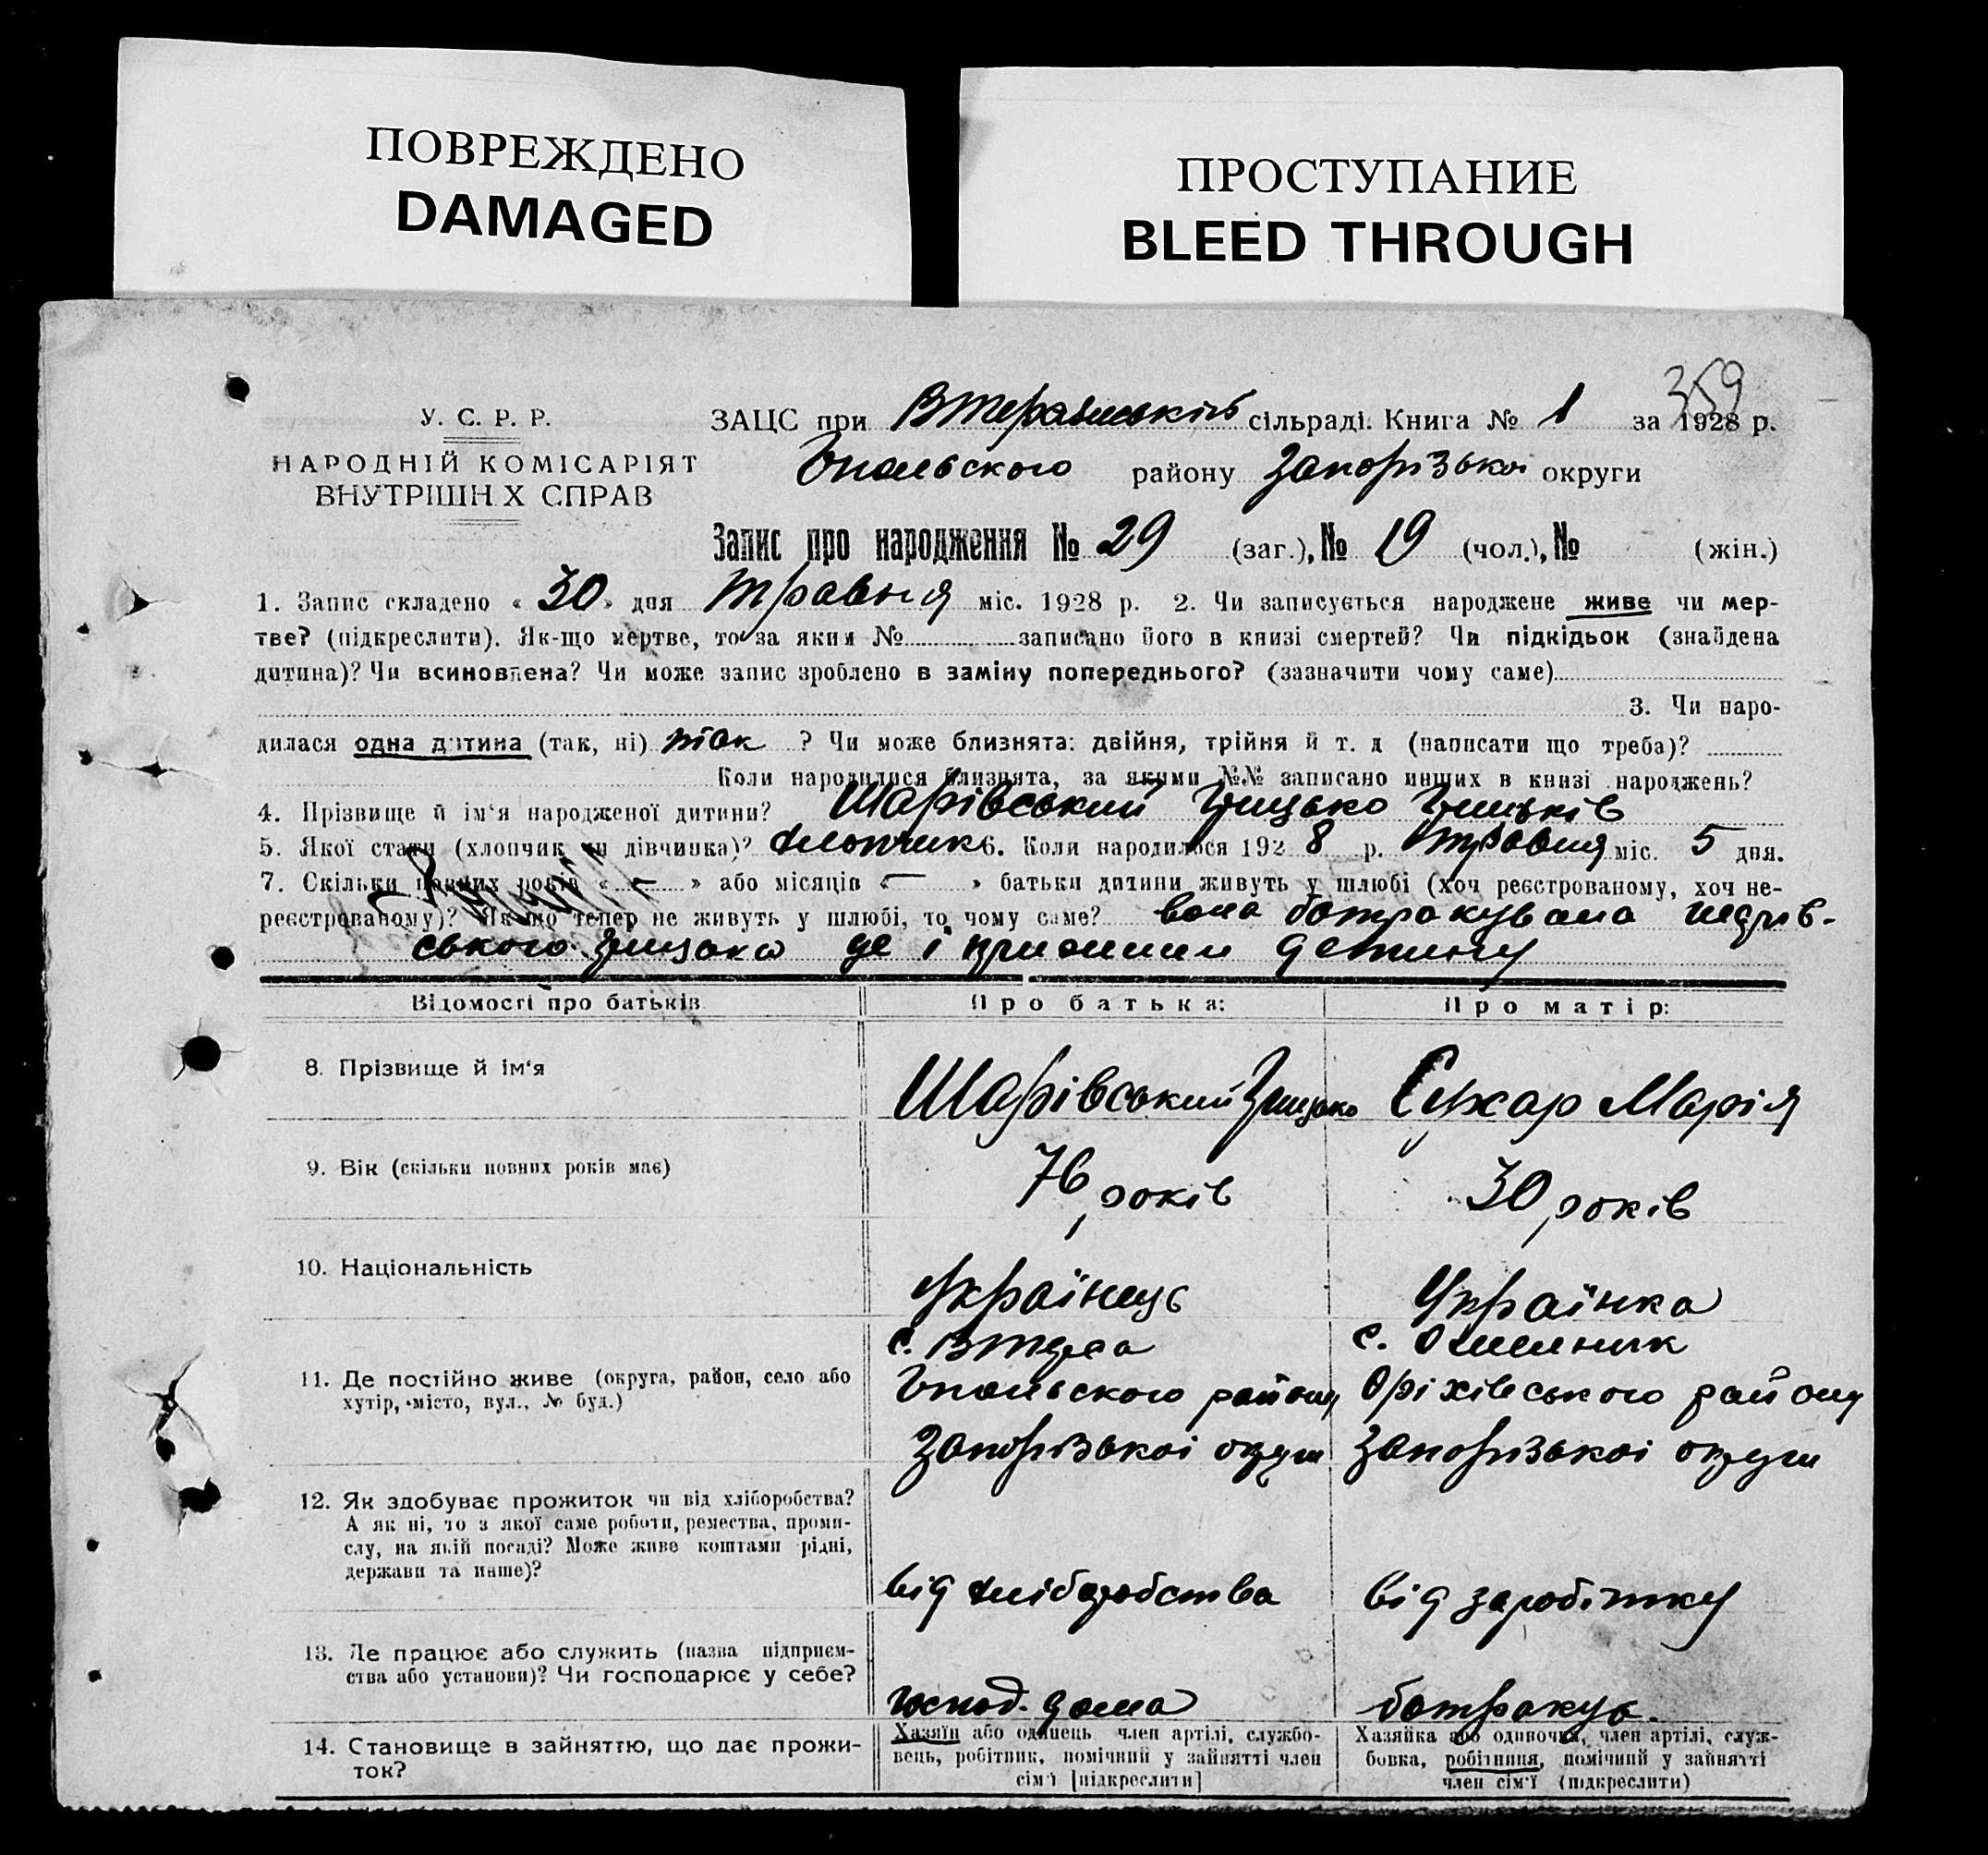 ПОВРЕЖДЕНО
DAMAGED
ПРОСТУПАНИЕ
BLEED THROUGH
359
У. С. Р. Р.
НАРОДНІЙ КОМІСАРІЯТ
ВНУТРІШН Х СПРАВ
ЗАЦС при Втерамській сільраді. Книга № 1 за 1928 р.
району Запорізької округи
Запис про народження № 29 (заг.), № 19 (чол.), № (жін.)
1. Запис складено « 30 » дня травня міс. 1928 р. 2. Чи записується народжене живе чи мер-
тве? (підкреслити). Як-що мертве, то за яким № записано його в книзі смертей? Чи підкідьок (знайдена
дитина)? Чи всиновлена? Чи може запис зроблено в заміну попереднього? (зазначити чому саме)
3. Чи наро-
дилася одна дитина (так, ні) так ? Чи може близнята: двійня, трійня й т. д (написати що треба)?
Коли народилися близнята, за якими №№ записано инших в книзі народжень?
4. Прізвище й ім'я народженої дитини? Шарівський Грицько Грицьків
5. Якої стати (хлопчик чи дівчинка)? хлопчик 6. Коли народилося 1928 р. травня міс. 5 дня.
7. Скільки повних років « – » або місяців « – » батьки дитини живуть у шлюбі (хоч реєстрованому, хоч не-
реєстрованому)? Як-що тепер не живуть у шлюбі, то чому саме? вона батракувала Шарів-
ського Грицька де і прижили детину
Відомості про батьків
Про батька:
Про матір:
8. Прізвище й ім'я
Шарівський Грицько
Сухар Марія
9. Вік (скільки повних років має)
76 років
30 років
10. Національність
Українець
Українка
11. Де постійно живе (округа, район, село або
хутір, місто, вул., № буд.)
с.
району
Запорізької округи
с. Омельник
Оріхівського району
Запорізької округи
12. Як здобуває прожиток чи від хліборобства?
А як ні, то з якої саме роботи, ремества, проми-
слу, на якій посаді? Може живе коштами рідні,
держави та инше)?
від хліборобства
від заробітку
13. Де працює або служить (назва підприєм-
ства або установи)? Чи господарює у себе?
господ. дома
батракує.
14. Становище в зайняттю, що дає прожи-
ток?
Хазяїн або одинець член артілі, службо-
вець, робітник, помічний у зайнятті член
сім'ї [підкреслити]
Хазяйка або одиночка, член артілі, служ-
бовка, робітниця, помічний у зайнятті
член сім'ї (підкреслити)